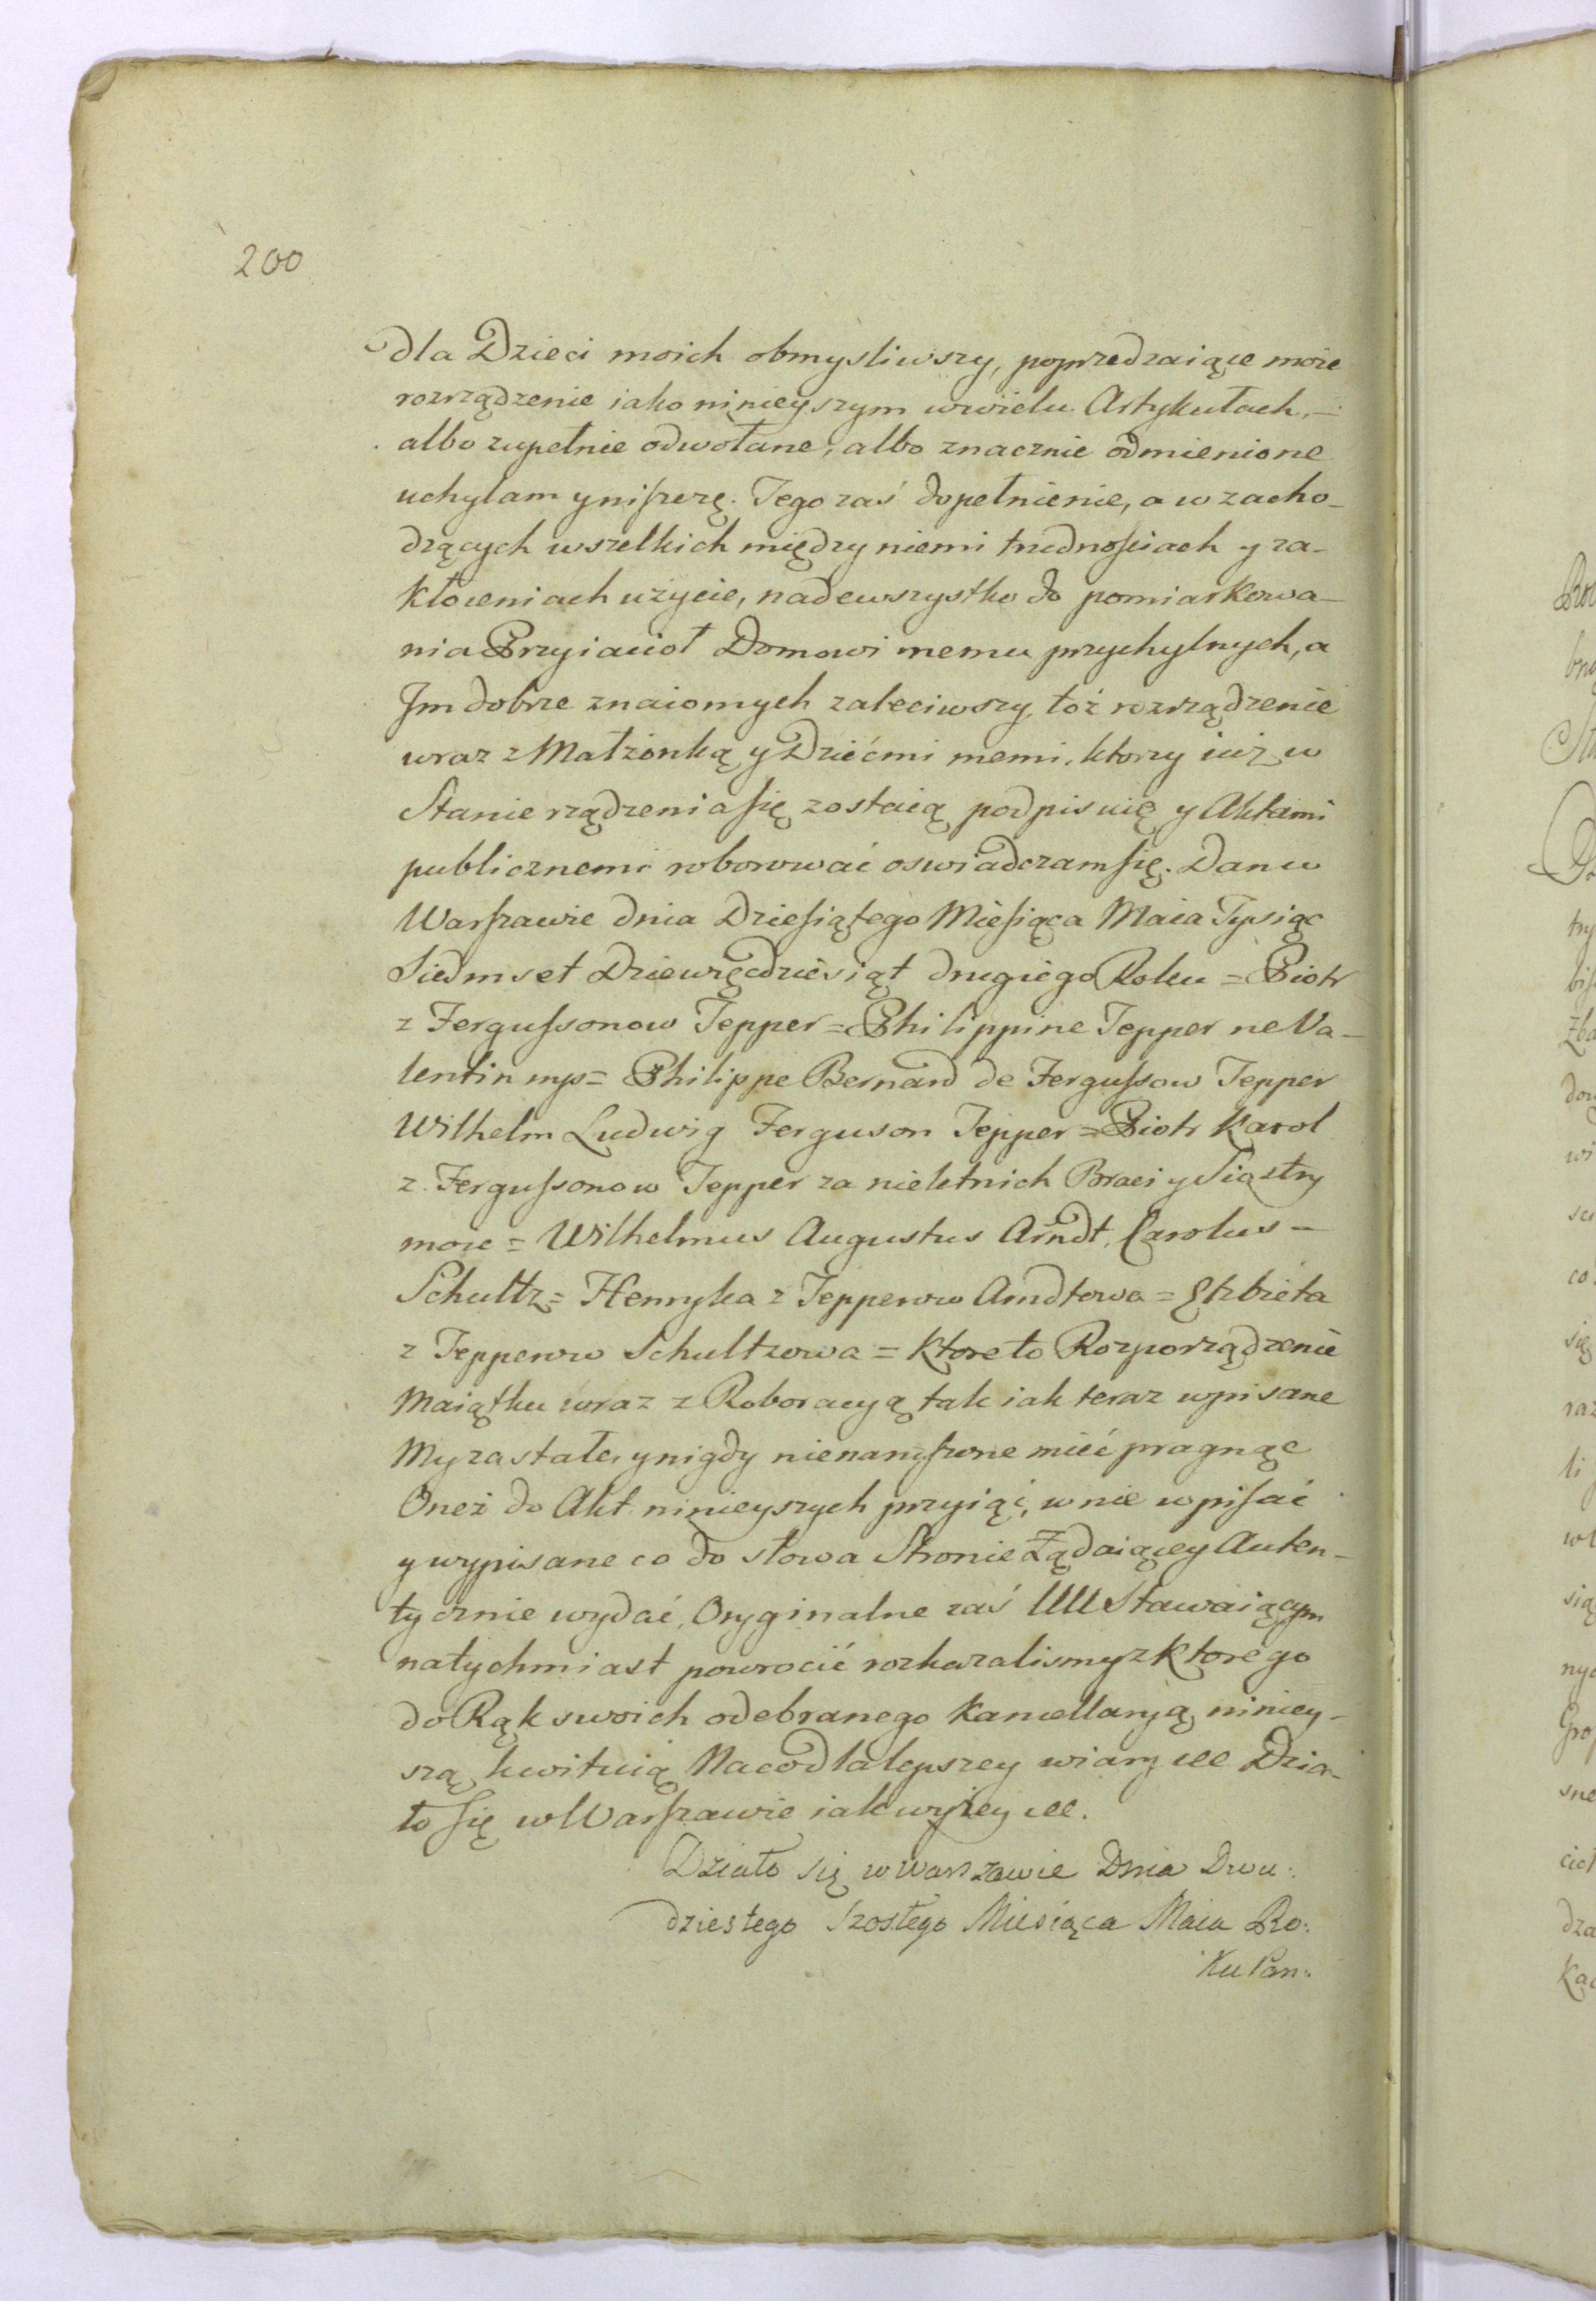 200
dla Dzieci moich obmysliwszy, poprzedzaiące moie
rozrządzenie iako ninieyszym w wielu Artykułach, –
albo zupełnie odwołane, albo znacznie odmienione
uchylam y niszczę. Tego zaś dopełnienie, a w zacho-
dzących wszelkich między niemi trudnościach y za-
kłoceniach użycie, nadewszystko do pomiarkowa-
nia Przyiacioł Domowi memu przychylnych, a
Jm dobrze znaiomych zaleciwszy, toż rozrządzenie
wraz z Małżonką y Dziećmi memi, ktorzy iuż w
Stanie rządzenia się zostaią podpisuię y Aktami
publicznemi roborować oswiadczam się. Dan w
Warszawie dnia Dziesiątego Miesiąca Maia Tysiąc
Siedmset Dziewięćdziesiąt drugiego Roku = Piotr
z Fergussonow Tepper = Philippine Tepper ne Va-
lentin mp = Philippe Bernard de Fergussow Tepper
Wilhelm Ludwig Ferguson Tepper = Piotr Karol
z Fergussonow Tepper za nieletnich Braci y Siostry
moie = Wilhelmus Augustus Arndt, Carolus –
Schultz = Henryka z Tepperow Arndtowa = Elzbieta
z Tepperow Schultzowa = ktore to Rozporządzenie
Maiątku wraz z Roboracyą tak iak teraz wpisane
My za stałe, y nigdy nienaruszone mieć pragnąc
Oneż do Akt ninieyszych przyiąć, w nie wpisać
y wypisane co do słowa Stronie Żądaiącey Auten-
tycznie wydać, Oryginalne zaś UUU Stawaiącym
natychmiast powrocić rozkazalismy z ktorego
do Rąk swoich odebranego Kancellaryą niniey-
szą kwituią Na co dla lepszey wiary etc Dzia-
ło się w Warszawie iak wyżey etc.
Działo się w Warszawie Dnia Dwu:
dziestego Szostego Miesiąca Maia Ro:
ku Pan: